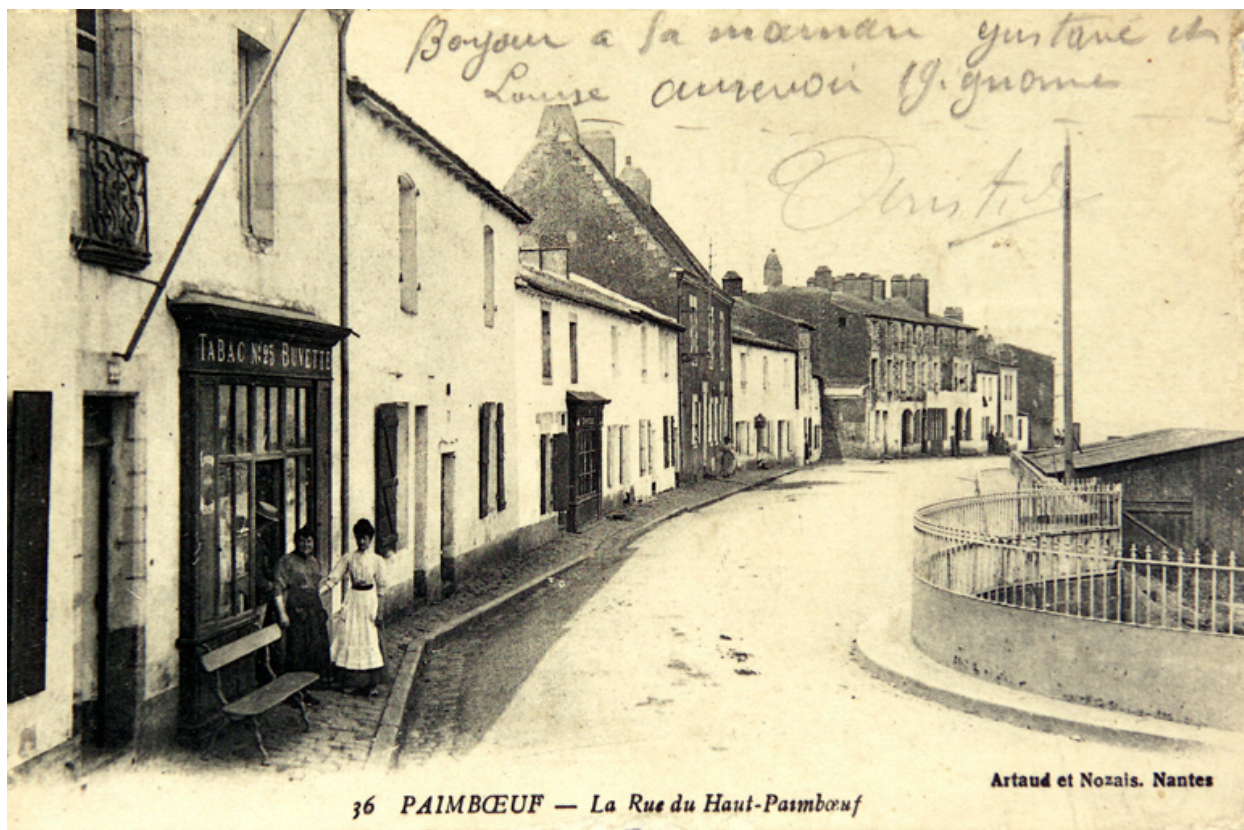 Bonjour a la maman gustave et
Louise aurevoir
TABAC Nº25 BUVETTE
Artaud et Nozais. Nantes
36 PAIMBŒUF — La Rue du Haut-Paimbœuf